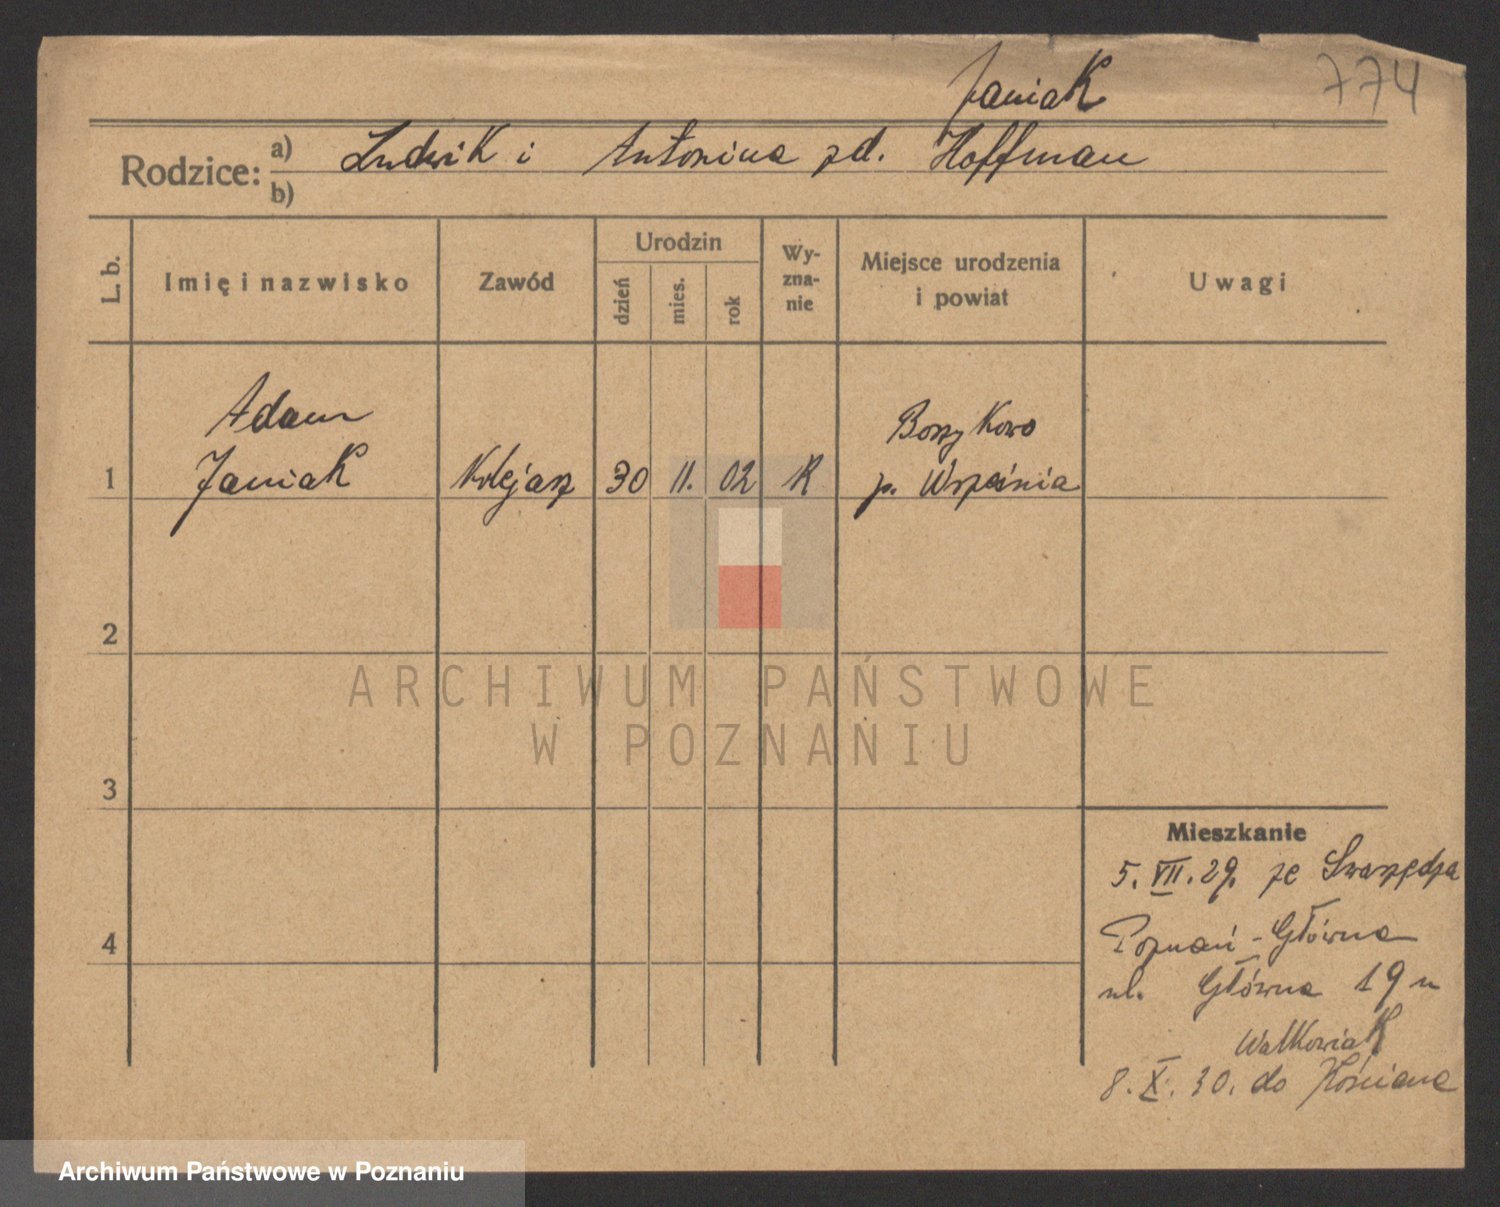 774
Janiak
Rodzice: a) Ludwik i Antonina zd. Hoffman
b)
L. b.
Imię i nazwisko
Zawód
Urodzin
dzień
mies.
rok
Wy-
zna-
nie
Miejsce urodzenia
i powiat
Uwagi
Adam
Janiak
1
Kolejarz
30
11.
02
K
p. Września
2
3
4
ARCHIWUM PAŃSTWOWE
W POZNANIU
Mieszkanie
5. VII. 29. ze Swarzędza
Poznań - Główna
ul. Główna 19 u
Walkowiak
8. X. 30. do Kościana
Archiwum Państwowe w Poznaniu